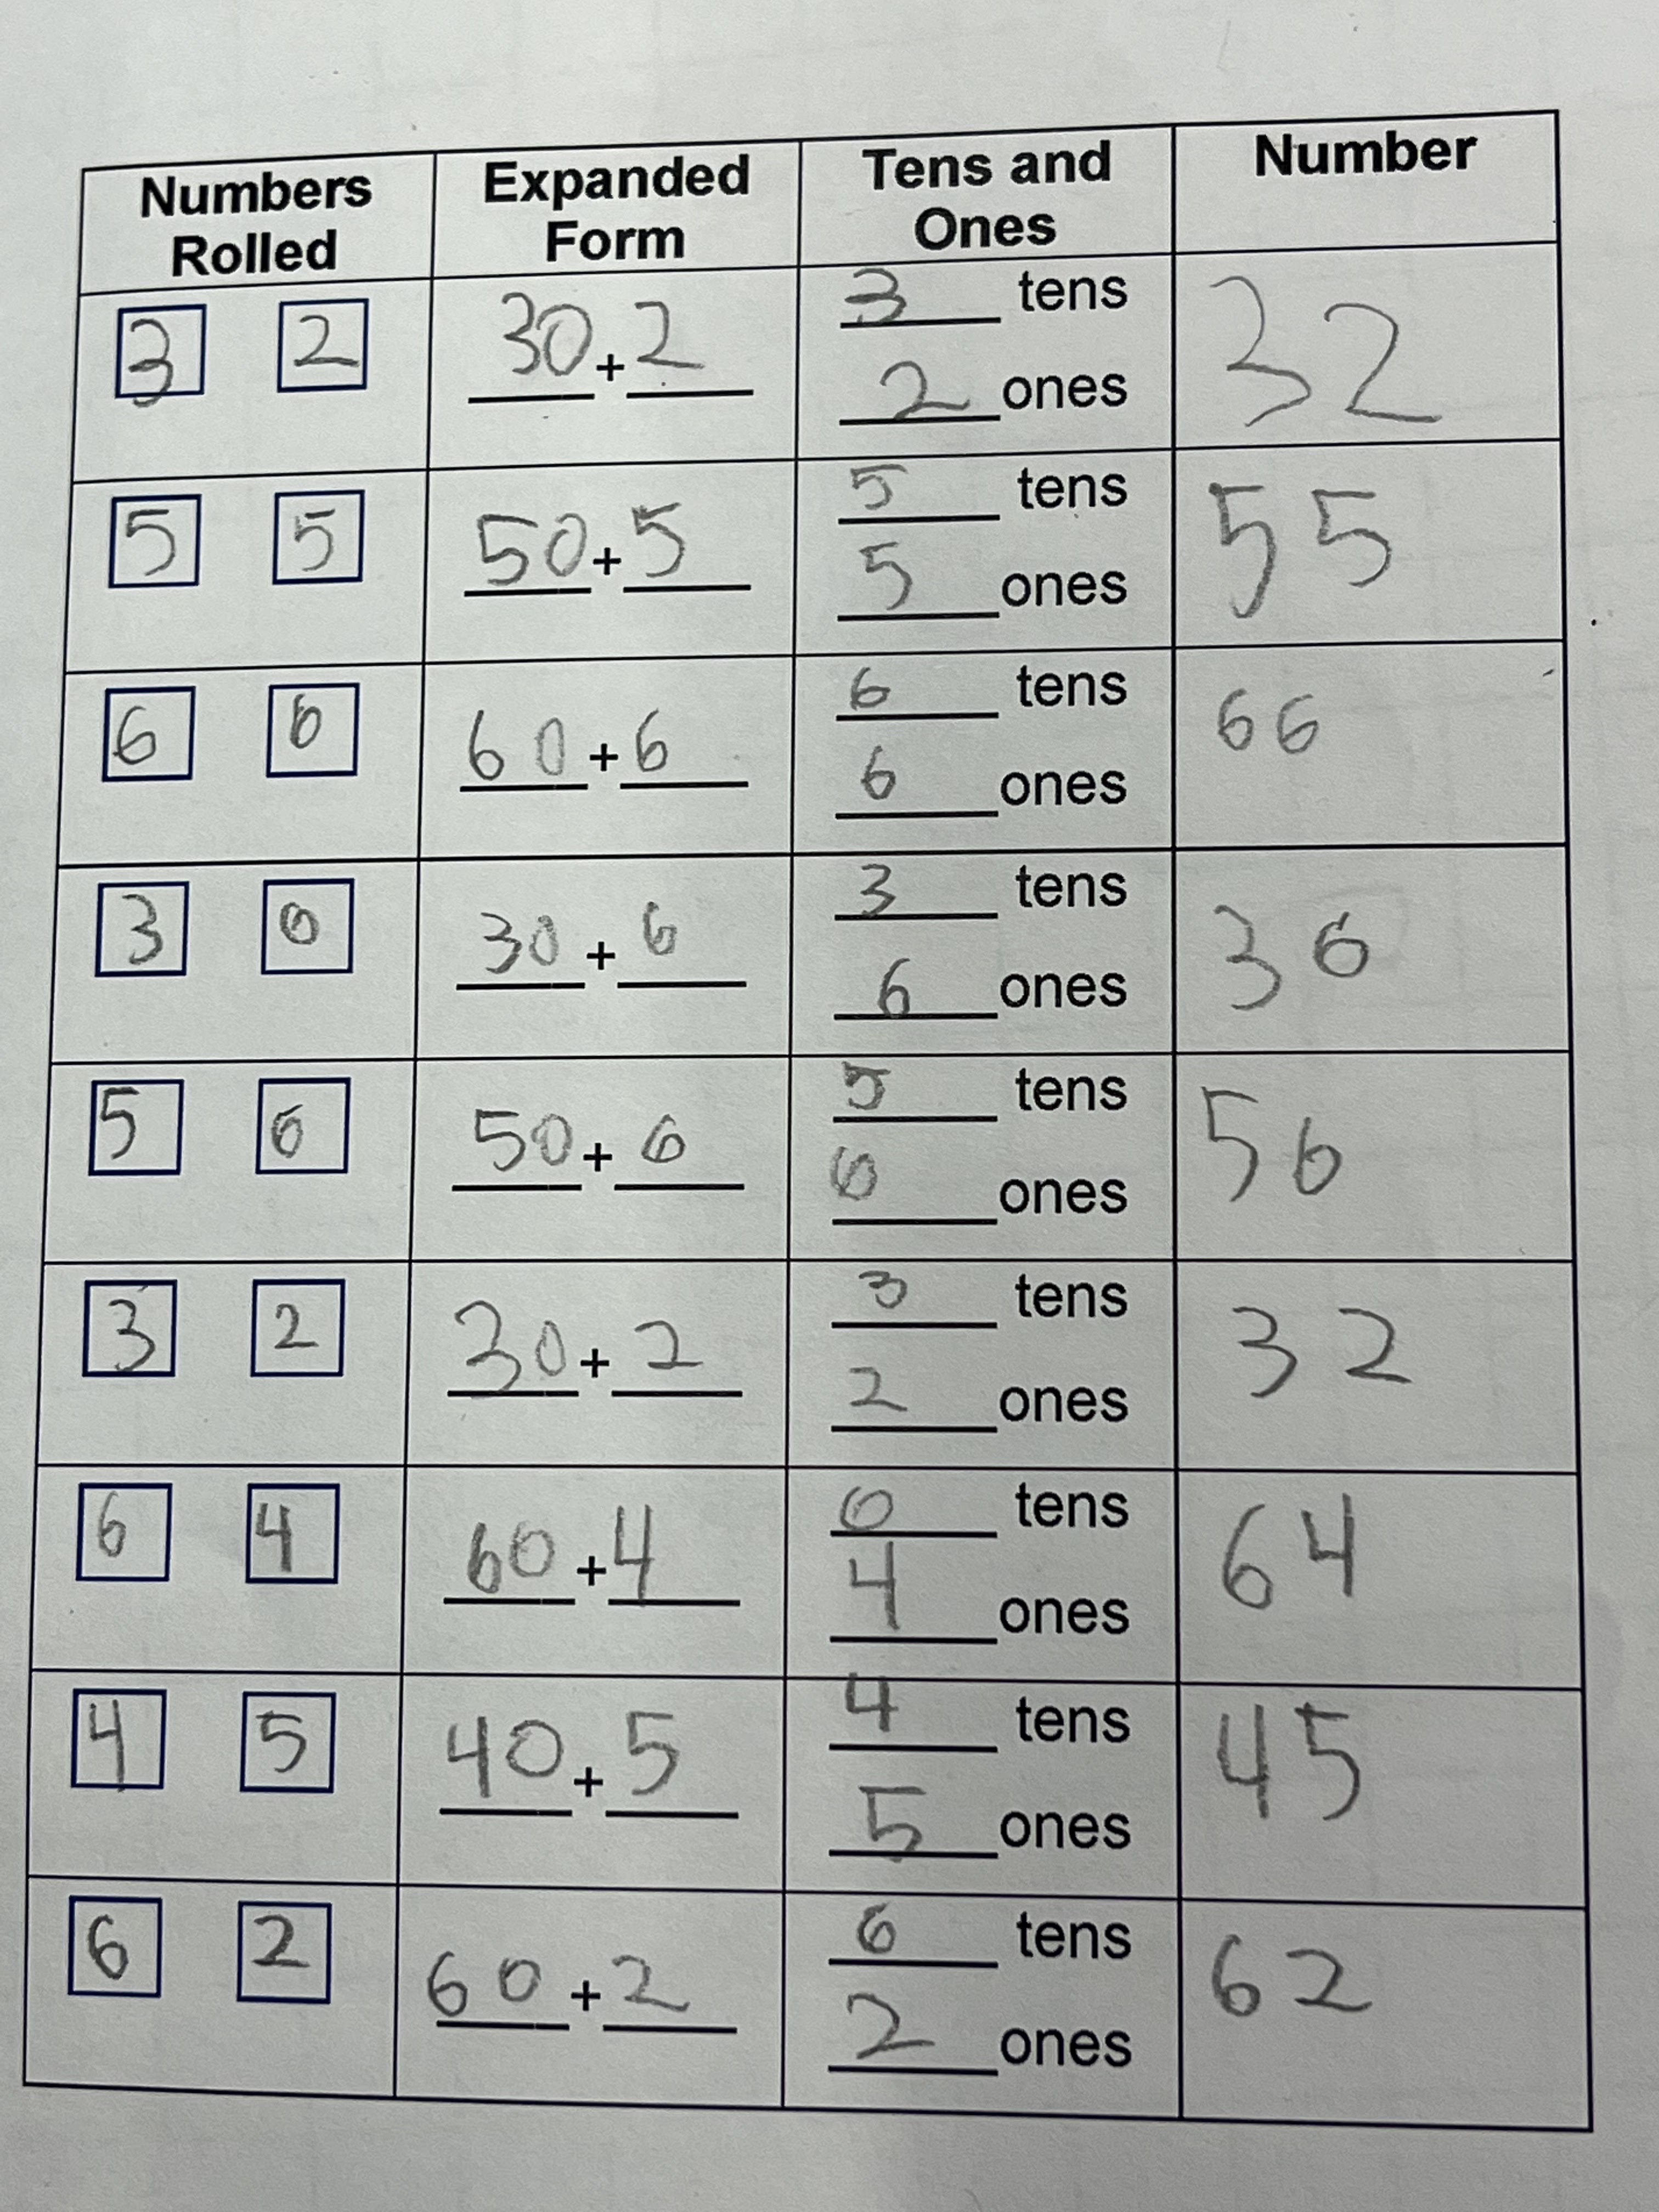 Numbers Rolled | Expanded Form | Tens and Ones | Number
3 2 | 30 + 2 | 3 tens 2 ones | 32
5 5 | 50 + 5 | 5 tens 5 ones | 55
6 6 | 60 + 6 | 6 tens 6 ones | 66
3 6 | 30 + 6 | 3 tens 6 ones | 36
5 6 | 50 + 6 | 5 tens 6 ones | 56
3 2 | 30 + 2 | 3 tens 2 ones | 32
6 4 | 60 + 4 | 6 tens 4 ones | 64
4 5 | 40 + 5 | 4 tens 5 ones | 45
6 2 | 60 + 2 | 6 tens 2 ones | 62